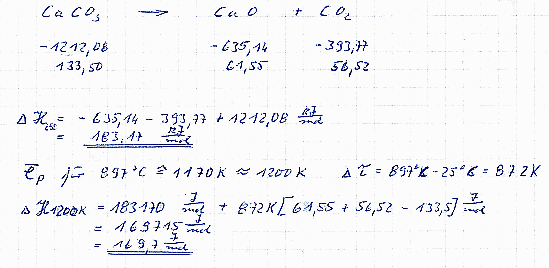 CaCO₃ → CaO + CO₂
-1212,08 -635,14 -393,77
133,50 61,55 56,52
ΔH₂₉₈ = -635,14 - 393,77 + 1212,08 kJ/mol
= 183,17 kJ/mol
c̄p für 897°C ≙ 1170K ≈ 1200K ΔT = 897°C - 25°C = 872K
ΔH1200K = 183170 J/mol + 872K[61,55 + 56,52 - 133,5] J/mol
= 169715 J/mol
= 169,7 J/mol